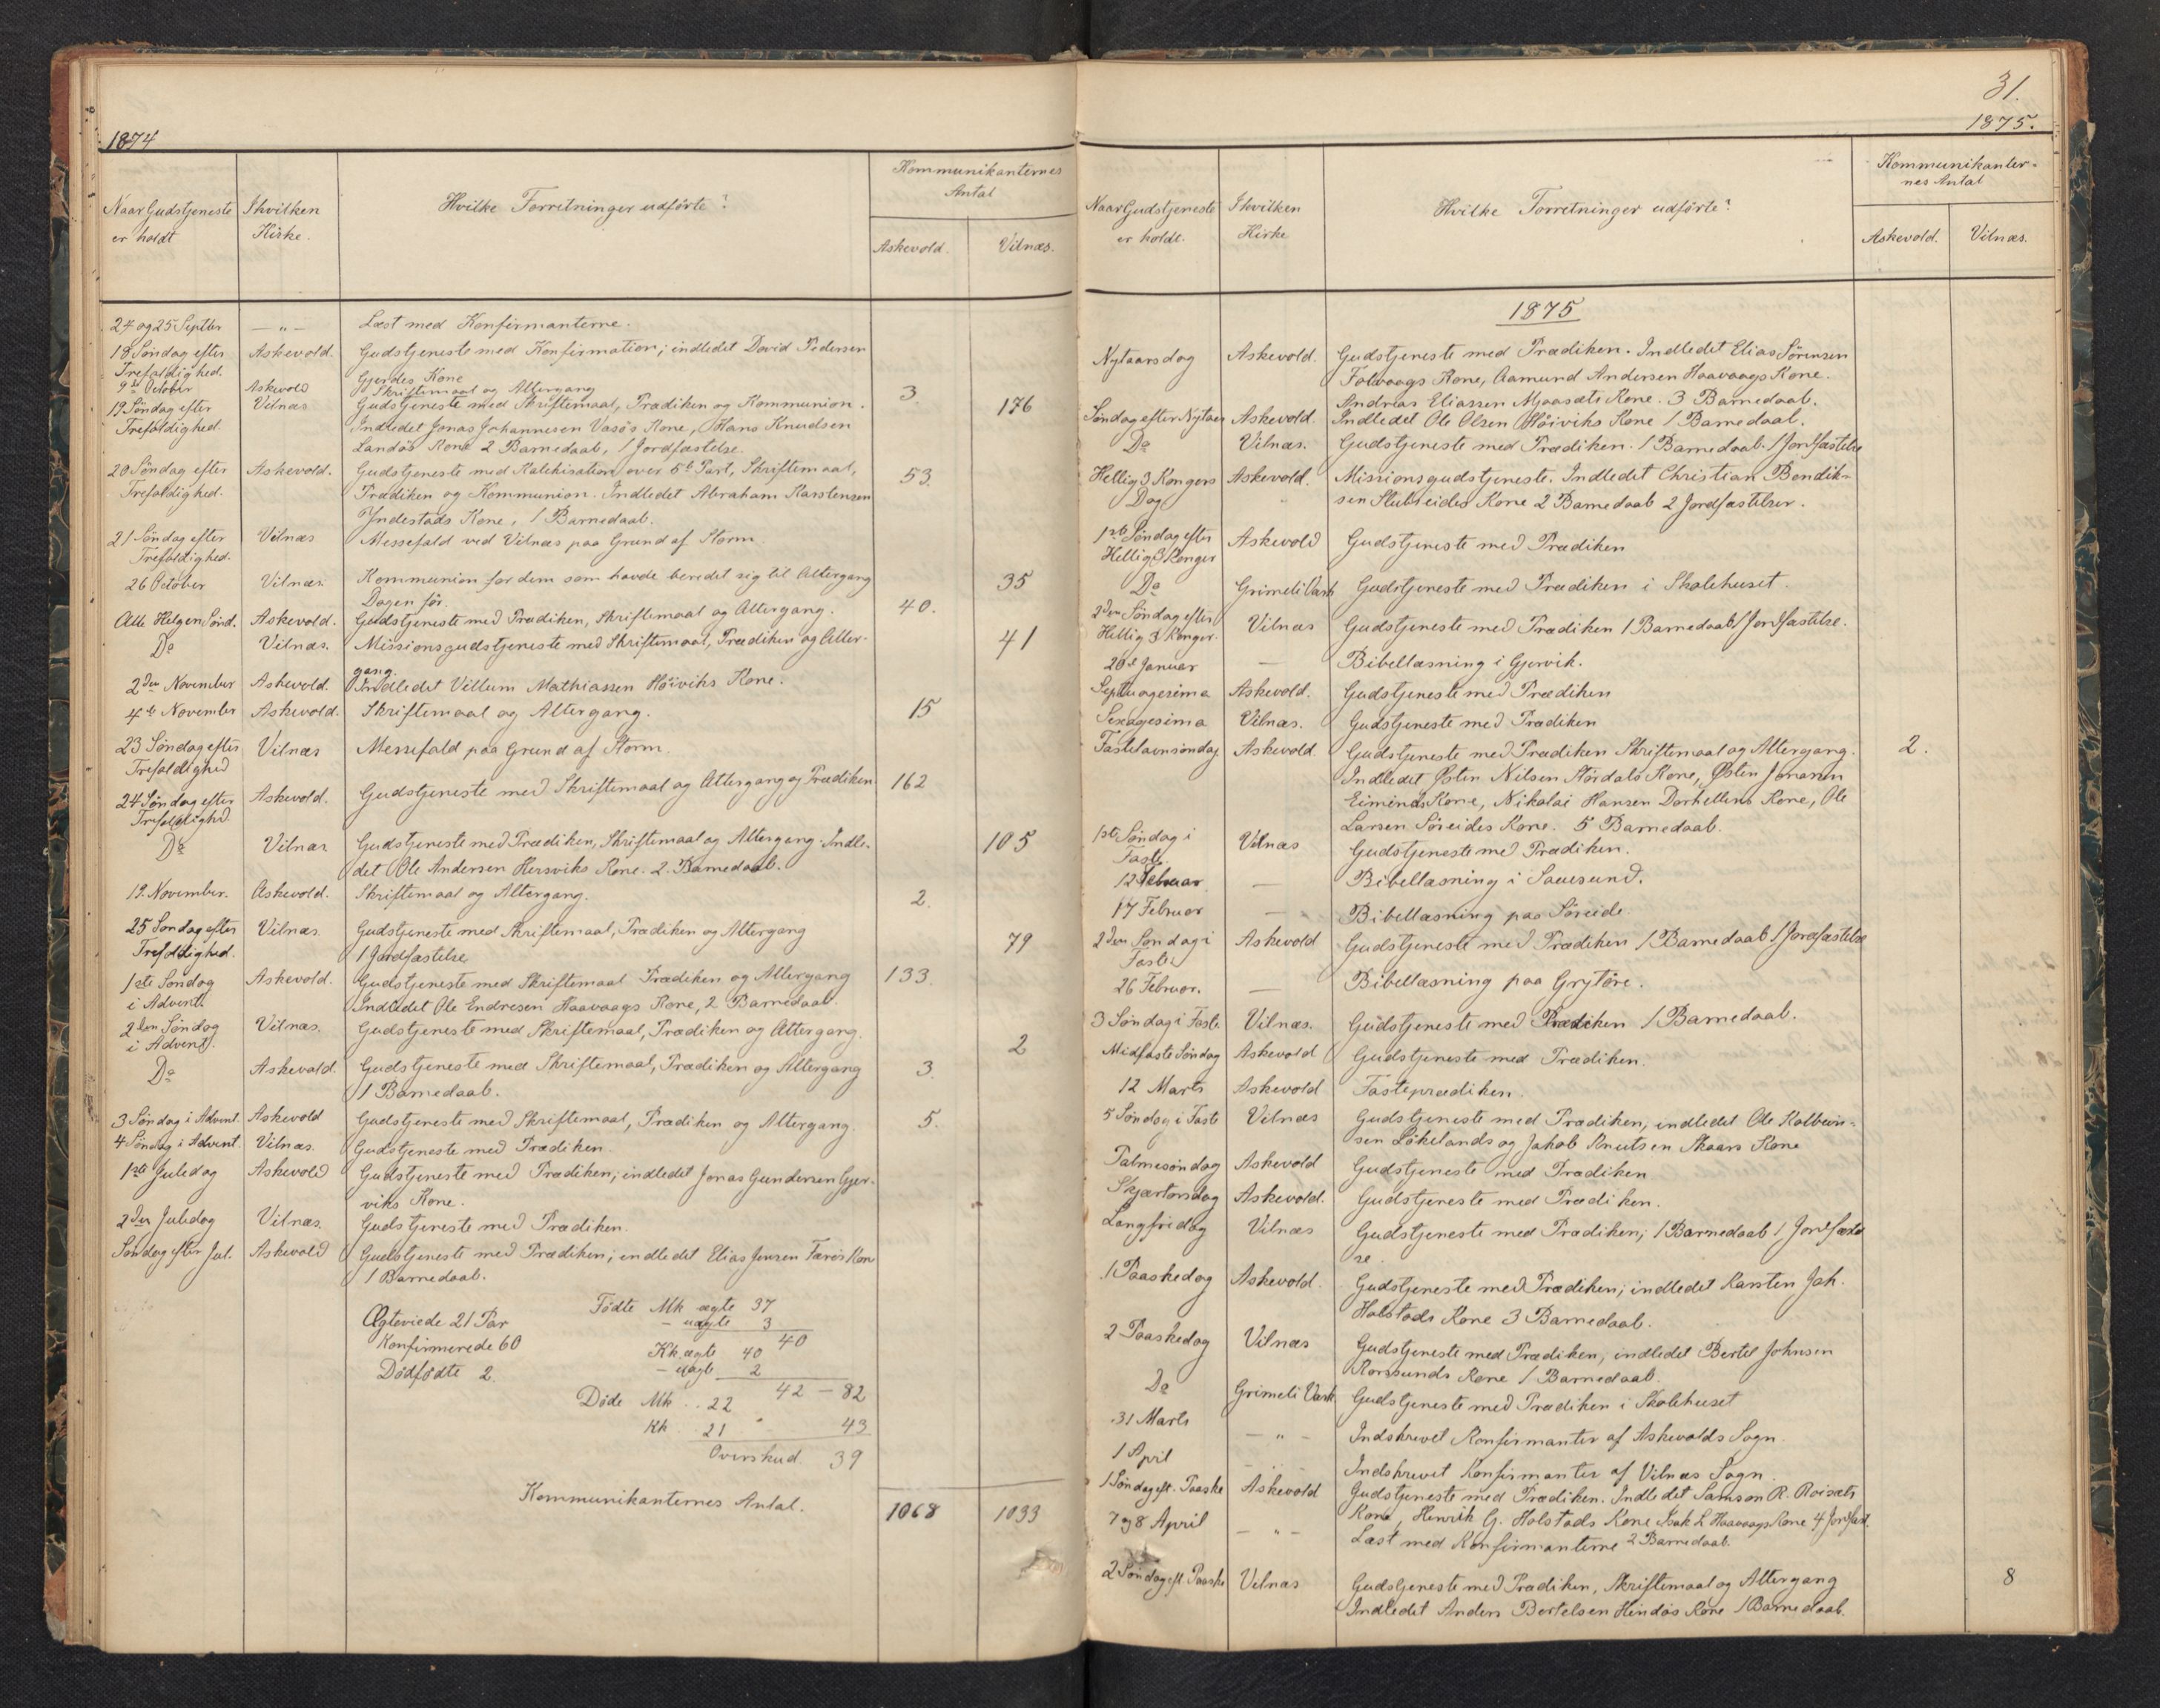 1874
Naar Gudstjeneste er holdt
I hvilken Kirke.
Hvilke Forretninger udförte?
Kommunikanternes Antal
Askevold.
Vilnæs.
24 og 25 Septbr — " — Læst med Konfirmanterne.
18 Søndag efter Trefoldighed. Askevold. Gudstjeneste med Konfirmation; indledet David Pedersen
Gjerdes Kone
9de October Askevold Skriftemaal og Altergang 3.
19 Søndag efter Trefoldighed. Vilnæs Gudstjeneste med Skriftemaal, Prædiken og Kommunion. 176
Indledet Jonas Johannesen Vasös Kone, Hans Knudsen
Landös Kone 2 Barnedaab, 1 Jordfæstelse.
20 Söndag efter Trefoldighed. Askevold. Gudstjeneste med Katekisation over 5te Part, Skriftemaal, 53.
Prædiken og Kommunion. Indledet Abraham Karstensen
Yndestads Kone, 1 Barnedaab.
21 Søndag efter Trefoldighed. Vilnæs Messefald ved Vilnæs paa Grund af Storm.
26 October Vilnæs. Kommunion for dem som havde beredet sig til Altergang 35
Dagen för.
Alle Helgen Sönd. Askevold. Gudstjeneste med Prædiken, Skriftemaal og Altergang. 40.
Do Vilnæs. Missionsgudstjeneste med Skriftemaal, Prædiken og Alter- 41
gang.
2den November Askevold. Indledet Villum Mathiassen Höiviks Kone.
4de November Askevold. Skriftemaal og Altergang. 15
23 Søndag efter Trefoldighed Vilnæs Messefald paa Grund af Storm.
24 Søndag efter Trefoldighd. Askevold. Gudstjeneste med Skriftemaal og Altergang og Prædiken 162
Do Vilnæs Gudstjeneste med Prædiken, Skriftemaal og Altergang. Indle- 105
det Ole Andersen Hersviks Kone. 2 Barnedaab.
19. November. Askevold. Skriftemaal og Altergang. 2.
25 Søndag efter Trefoldighed. Vilnæs. Gudstjeneste med Skriftemaal, Prædiken og Altergang 79
1 Jordfæstelse
1ste Søndag i Advent. Askevold. Gudstjeneste med Skriftemaal Prædiken og Altergang 133.
Indledet Ole Endresen Haavaags Kone, 2 Barnedaab.
2den Søndag i Advent. Vilnæs. Gudstjeneste med Skriftemaal, Prædiken og Altergang. 2
Do Askevold. Gudstjeneste med Skriftemaal, Prædiken og Altergang 3.
1 Barnedaab.
3 Søndag i Advent. Askevold Gudstjeneste med Skriftemaal, Prædiken og Altergang. 5.
4 Søndag i Advent. Vilnæs. Gudstjeneste med Prædiken.
1ste Juledag Askevold Gudstjeneste med Prædiken; indledet Jonas Gundersen Gjer-
viks Kone.
2den Juledag Vilnæs. Gudstjeneste med Prædiken.
Søndag efter Jul. Askevold Gudstjeneste med Prædiken; indledet Elias Jensen Færös Kon
1 Barnedaab.
Ægteviede 21 Par
Konfirmerede 60
Dødfødte 2.
Födte Mk ægte 37
— uægte 3
40
Kk. ægte 40
— uægte 2
42 — 82
Döde Mk .. 22
Kk . 21 " 43
Overskud. 39
Kommunikanternes Antal. 1068 1033
31.
1875.
Naar Gudstjeneste er holdt.
I hvilken Kirke
Hvilke Forretninger udförte?
Kommunikanter-
nes Antal
Askevold.
Vilnæs.
1875
Nytaarsdag Askevold. Gudstjeneste med Prædiken. Indledet Elias Sörensen
Folevaags Kone, Aamund Andersen Haavaags Kone.
Andreas Eliassen Mjaasæts Kone. 3 Barnedaab.
Søndag efter Nytaar Askevold. Indledet Ole Olsen Höiviks Kone 1 Barnedaab.
Do Vilnæs. Gudstjeneste med Prædiken. 1 Barnedaab. 1 Jordfæstelse
Hellig 3 Kongers Dag Askevold. Missionsgudstjeneste. Indledet Christian Bendik-
sen Slubseides Kone 2 Barnedaab 2 Jordfæstelser.
1ste Søndag efter Hellig 3 Konger Askevold Gudstjeneste med Prædiken
Do Grimeli Værk Gudstjeneste med Prædiken i Skolehuset.
2den Søndag efter Hellig 3 Konger. Vilnæs Gudstjeneste med Prædiken 1 Barnedaab 1 Jordfæstelse.
20de Januar — Bibellæsning i Gjervik.
Septuagesima Askevold. Gudstjeneste med Prædiken
Sexagesima Vilnæs. Gudstjeneste med Prædiken
Fastelavnsöndag Askevold Gudstjeneste med Prædiken Skriftemaal og Altergang. 2.
Indledet Östen Nilsen Stördals Kone, Östen Jonasen
Eiminds Kone, Nikolai Hansen Dørhellens Kone, Ole
Larsen Söreides Kone. 5 Barnedaab.
1ste Søndag i Faste. Vilnæs Gudstjeneste med Prædiken.
12 Februar — Bibellæsning i Sauesund.
17 Februar — Bibellæsning paa Söreide.
2den Søndag i Faste Askevold Gudstjeneste med Prædiken 1 Barnedaab 1 Jordfæstelse
26 Februar. — Bibellæsning paa Grytöre.
3 Søndag i Faste Vilnæs. Gudstjeneste med Prædiken 1 Barnedaab.
Midfaste Søndag Askevold Gudstjeneste med Prædiken.
12 Marts Askevold Fasteprædiken.
5 Søndag i Faste Vilnæs Gudstjeneste med Prædiken; indledet Ole Kolbein-
sen Løkelands og Jakob Knutsen Skaars Kone
Palmesøndag Askevold Gudstjeneste med Prædiken
Skjærtorsdag Askevold. Gudstjeneste med Prædiken.
Langfredag Vilnæs Gudstjeneste med Prædiken; 1 Barnedaab 1 Jordfæstel
se.
1 Paaskedag Askevold. Gudstjeneste med Prædiken; indledet Karsten Joh.
Holstads Kone 3 Barnedaab.
2 Paaskedag Vilnæs Gudstjeneste med Prædiken; indledet Bertel Johnsen
Korssunds Kone 1 Barnedaab.
Do Grimeli Værk Gudstjeneste med Prædiken i Skolehuset
31 Marts — " — Indskrevet Konfirmanter af Askevolds Sogn.
1 April Indskrevet Konfirmanter af Vilnæs Sogn.
1 Søndag eft. Paaske Askevold Gudstjeneste med Prædiken. Indledet Samson R. Roisæts
Kone, Henrik G. Holstads Kone Isak L Haavaags Kone 4 Jordfæst.
7 og 8 April — " — Læst med Konfirmanterne 2 Barnedaab.
2 Søndag eft. Paaske Vilnæs Gudstjeneste med Prædiken, Skriftemaal og Altergang 8
Indledet Anders Bertelsen Hindøs Kone 1 Barnedaab.